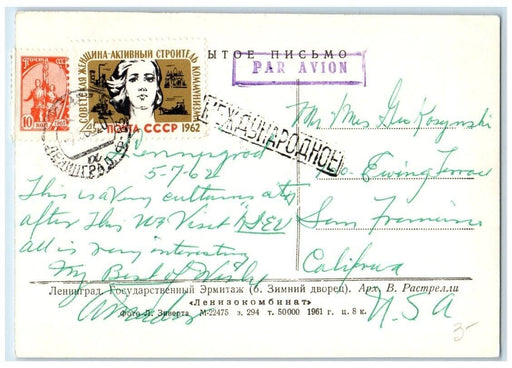 ЫТОЕ ПИСЬМО
СОВЕТСКАЯ ЖЕНЩИНА-АКТИВНЫЙ СТРОИТЕЛЬ КОММУНИЗМА
PAR AVION
4К ПОЧТА СССР 1962
10
МЕЖДУНАРОДНОЕ
ЛЕНИНГРАД
Lenningrad
5-7-62
This is a very culturing city
after This we Visit KIEV
all is very interesting
My Best of Wishes
Mr Mrs Geo Kosynski
Ewing Terrace
San Francisco
California
USA
Ленинград. Государственный Эрмитаж (б. Зимний дворец). Арх. В. Растрелли
«Ленизокомбинат»
Фото Л. Зиверта М-22475 з. 294 т. 50000 1961 г. ц. 8 к.
3-